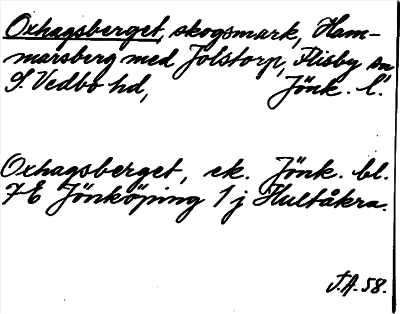 Oxhagsberget, skogsmark, Ham-
marsberg med Jolstorp, Flisby sn
S. Vedbo hd, Jönk. l.
Oxhagsberget, ek. Jönk. bl.
7E Jönköping 1j Hultåkra.
J.A. 58.